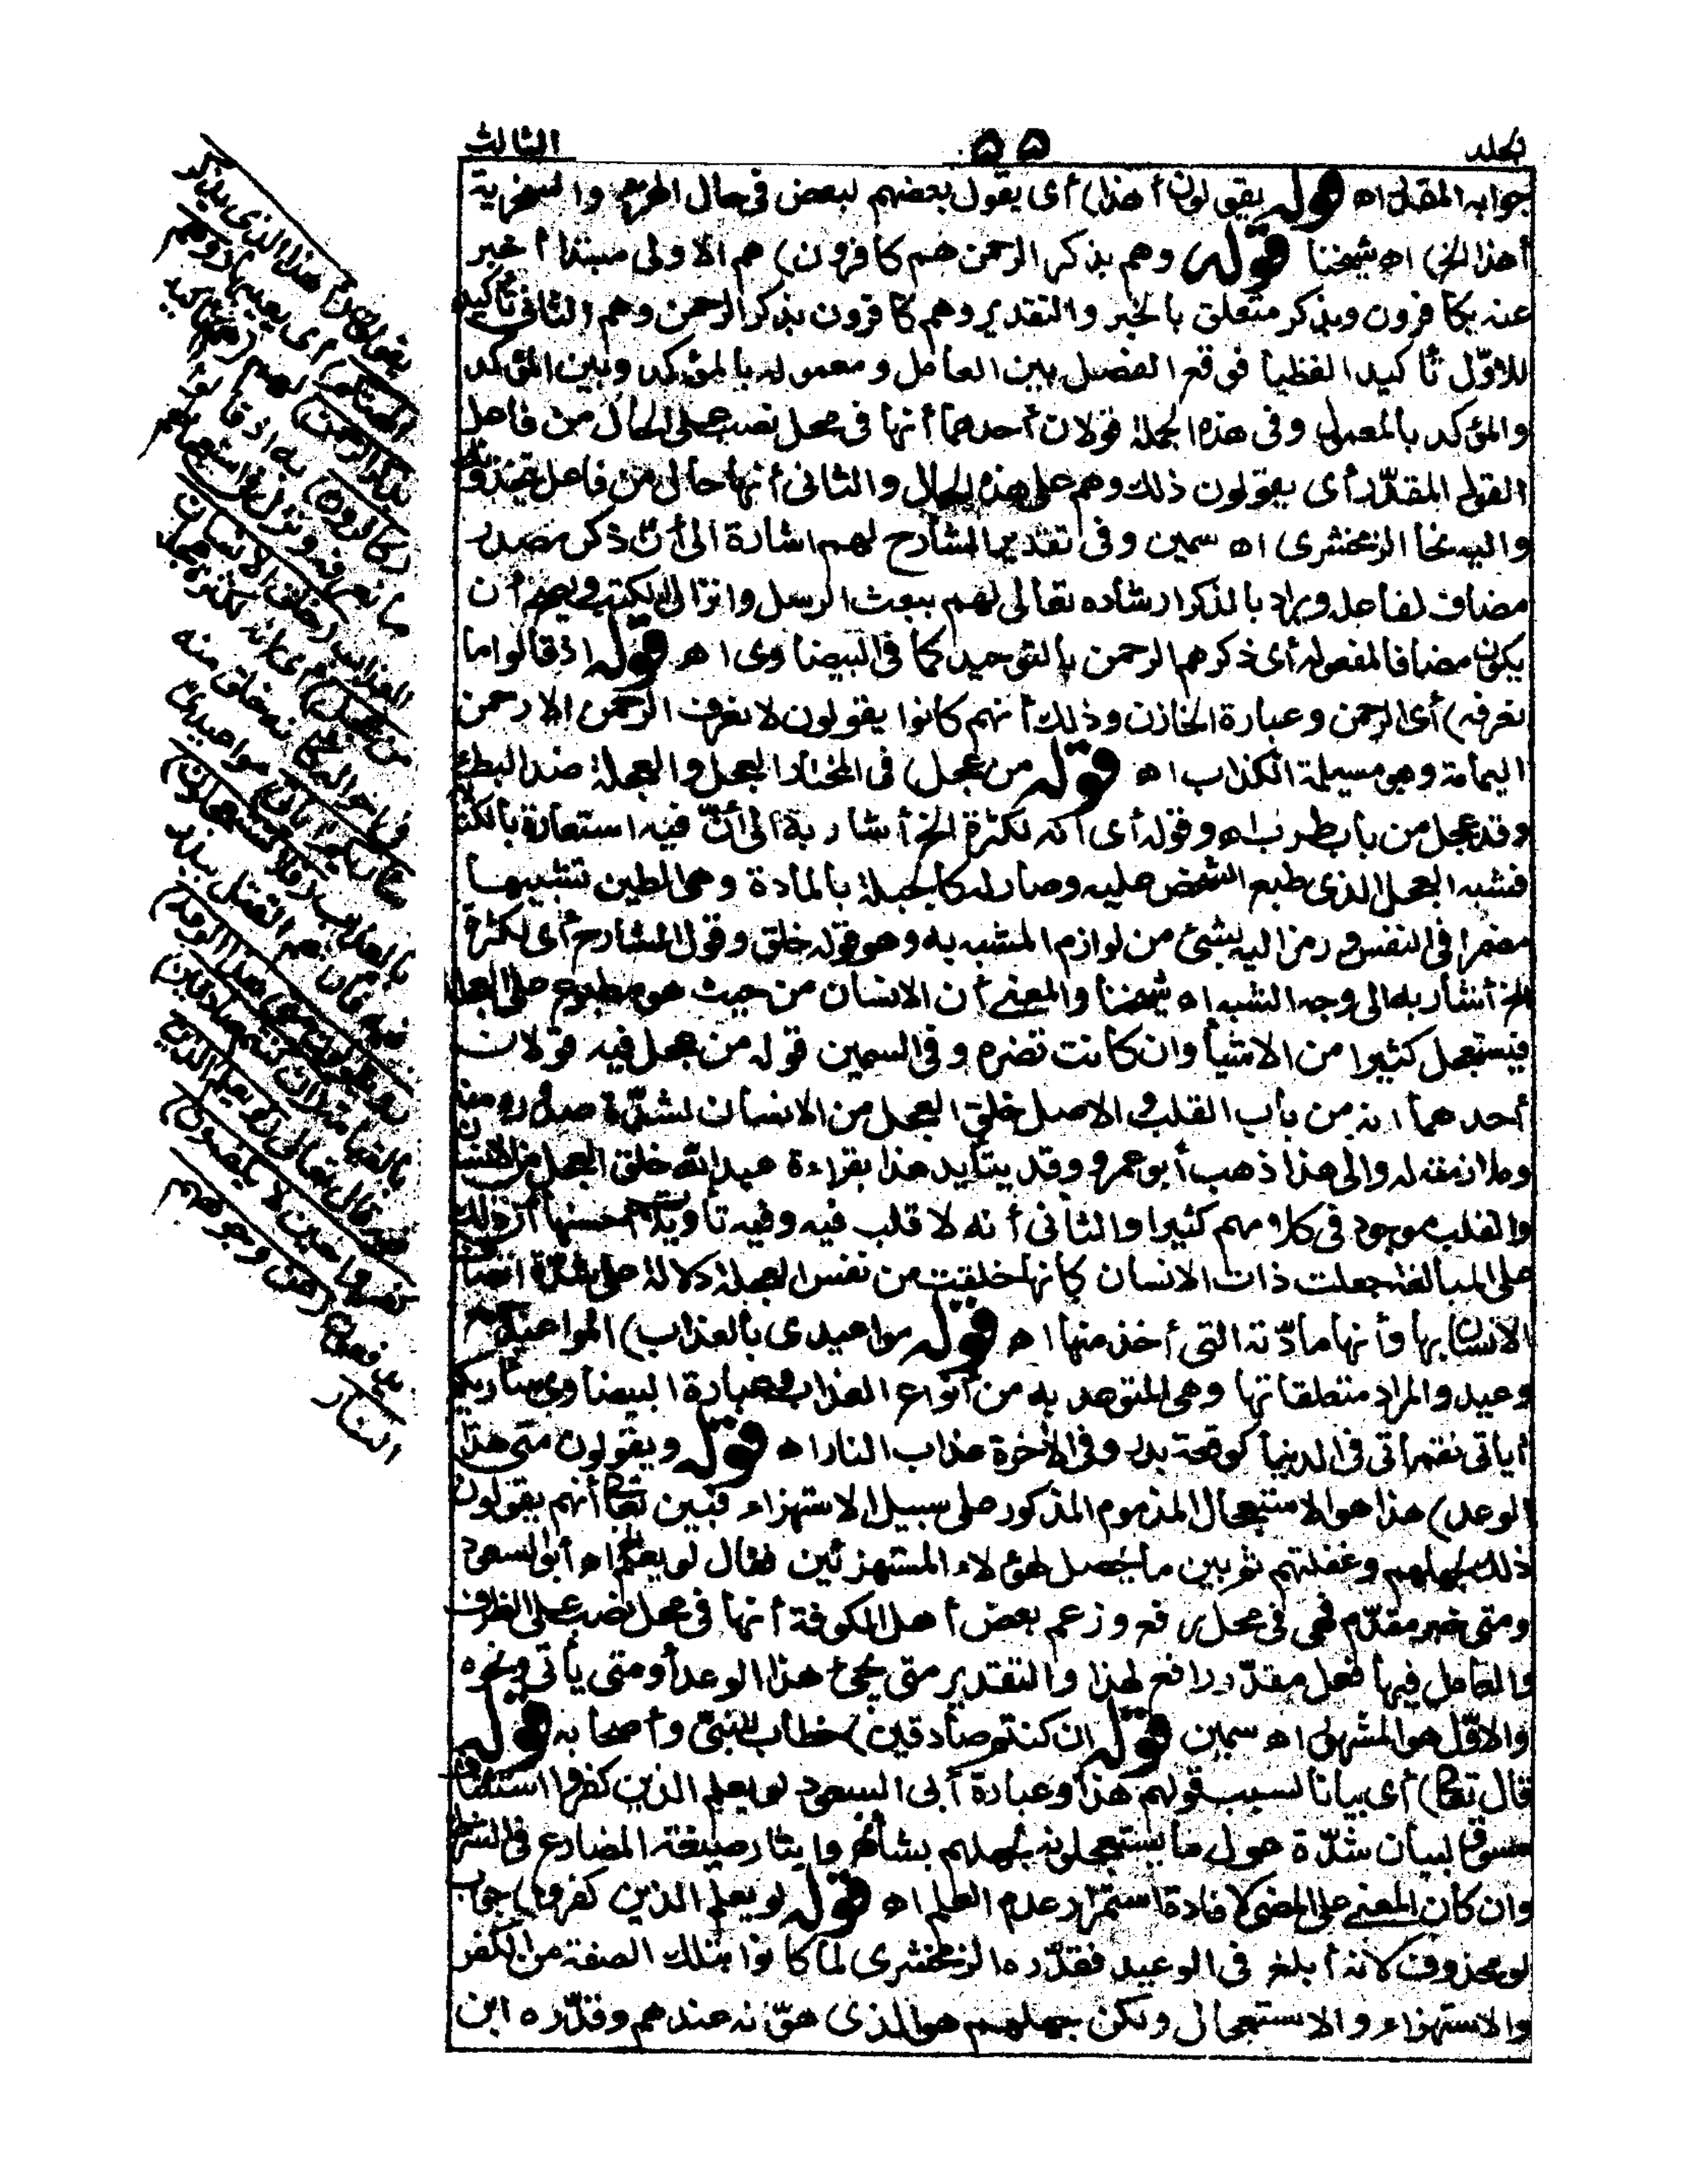 المجلد
٥٥
الثالث
جوابه المقدر اه قوله يقولون أهذا) أى يقول بعضهم لبعض فى حال الهزء والسخرية
أهذا الخ) اه شيخنا قوله (وهم بذكر الرحمن هم كافرون) هم الاولى مبتدأ خبر
عنه بكافرون وبذكر متعلق بالخبر والتقدير وهم كافرون بذكر الرحمن وهم الثانى تأكيد
للاوّل تأكيدا لفظيا فوقع الفصل بين العامل ومعموله بالمؤكد وبين المؤكد
والمؤكد بالمعمول وفى هذه الجملة قولان أحدهما أنها فى محل نصب على الحال من فاعل
القول المقدّر أى يقولون ذلك وهم على هذه الحال والثانى أنها حال من فاعل يتخذونك
واليه نحا الزمخشرى اه سمين وفى تقدير الشارح لهم اشارة الى أنّ ذكر مصدر
مضاف لفاعله ويراد بالذكر ارشاده تعالى لهم ببعث الرسل وانزال الكتب ويصح أن
يكون مضافا لمفعوله أى ذكرهم الرحمن بالتوحيد كما فى البيضاوى اه قوله اذ قالوا ما
نعرفه) أى الرحمن وعبارة الخازن وذلك أنهم كانوا يقولون لا نعرف الرحمن الا رحمن
اليمامة وهو مسيلمة الكذاب اه قوله من عجل) فى المختار العجل والعجلة ضد البطء
وقد عجل من باب طرب اه وقوله أى انه لكثرة الخ أشار به الى أنّ فيه استعارة بالكناية
فشبه العجل الذى طبع الشخص عليه وصار له كالجبلة بالمادة وهى الطين تشبيها
مضمرا فى النفس ورمز اليه بشئ من لوازم المشبه به وهو قوله خلق وقول الشارح أى لكثرة
الخ أشار به الى وجه الشبه اه شيخنا والمعنى أن الانسان من حيث هو مطبوع على العجلة
فيستعجل كثيرا من الاشيأ وان كانت تضره وفى السمين قوله من عجل فيه قولان
أحدهما انه من باب القلب والاصل خلق العجل من الانسان لشدّة صدوره منه
وملازمته له والى هذا ذهب أبو عمرو وقد يتأيد هذا بقراءة عبد الله خلق العجل من الانسان
والقلب موجود فى كلامهم كثيرا والثانى أنه لا قلب فيه وفيه تأويلات أحسنها أن ذلك
على المبالغة جعلت ذات الانسان كانها خلقت من نفس العجلة دلالة على شدّة اتصاف
الانسان بها وأنها مادّته التى أخذ منها اه قوله مواعيدى بالعذاب) المواعيد جمع
وعيد والمراد متعلقاتها وهى المتوعد به من أنواع العذاب وعبارة البيضاوى سأريكم
أياتى نقماتى فى الدنيا كوقعة بدر وفى الأخرة عذاب النار اه قوله ويقولون متى هذا
الوعد) هذا هو الاستعجال المذموم المذكور على سبيل الاستهزاء فبين تعالى أنهم يقولون
ذلك لجهلهم وغفلتهم ثم بين ما يحصل لهؤلاء المستهزئين فقال لو يعلم الخ اه أبو السعود
ومتى خبر مقدّم فهى فى محل رفع وزعم بعض أهل الكوفة أنها فى محل نصب على الظرف
والعامل فيها فعل مقدّر رافع لهذا والتقدير متى يجئ هذا الوعد أو متى يأتى ونحوه
والاوّل هو المشهور اه سمين قوله ان كنتم صادقين) خطاب للنبىّ وأصحابه قوله
قال تعالى) أى بيانا لسبب قولهم هذا وعبارة أبى السعود لو يعلم الذين كفروا استئناف
مسوق لبيان شدّة هول ما يستعجلونه لجهلهم بشأنه وايثار صيغة المضارع فى الشرط
وان كان المعنى على المضى لافادة استمرار عدم العلم اه قوله لو يعلم الذين كفروا) جواب
لو محذوف لانه أبلغ فى الوعيد فقدّره الزمخشرى لما كانوا بتلك الصفة من الكفر
والاستهزاء والاستعجال ولكن جهلهم هو الذى هوّنه عندهم وقدّره ابن
يقولون (أهذا الذى يذكر
آلهتكم) أى يعيبها (وهم
بذكر الرحمن) لهم (هم) تأكيد
(كافرون) به اذ قالوا
ما نعرفه ونزل فى استعجالهم
العذاب (خلق الانسان
من عجل) أى انه لكثرة عجله
فى احواله كانه خلق منه
(سأريكم آياتى) مواعيدى
بالعذاب (فلا تستعجلون)
فيه فأراهم القتل ببدر
(ويقولون متى هذا الوعد)
بالقيامة (ان كنتم صادقين)
فيه قال تعالى (لو يعلم الذين
كفروا حين لا يكفون)
يدفعون (عن وجوههم
النار